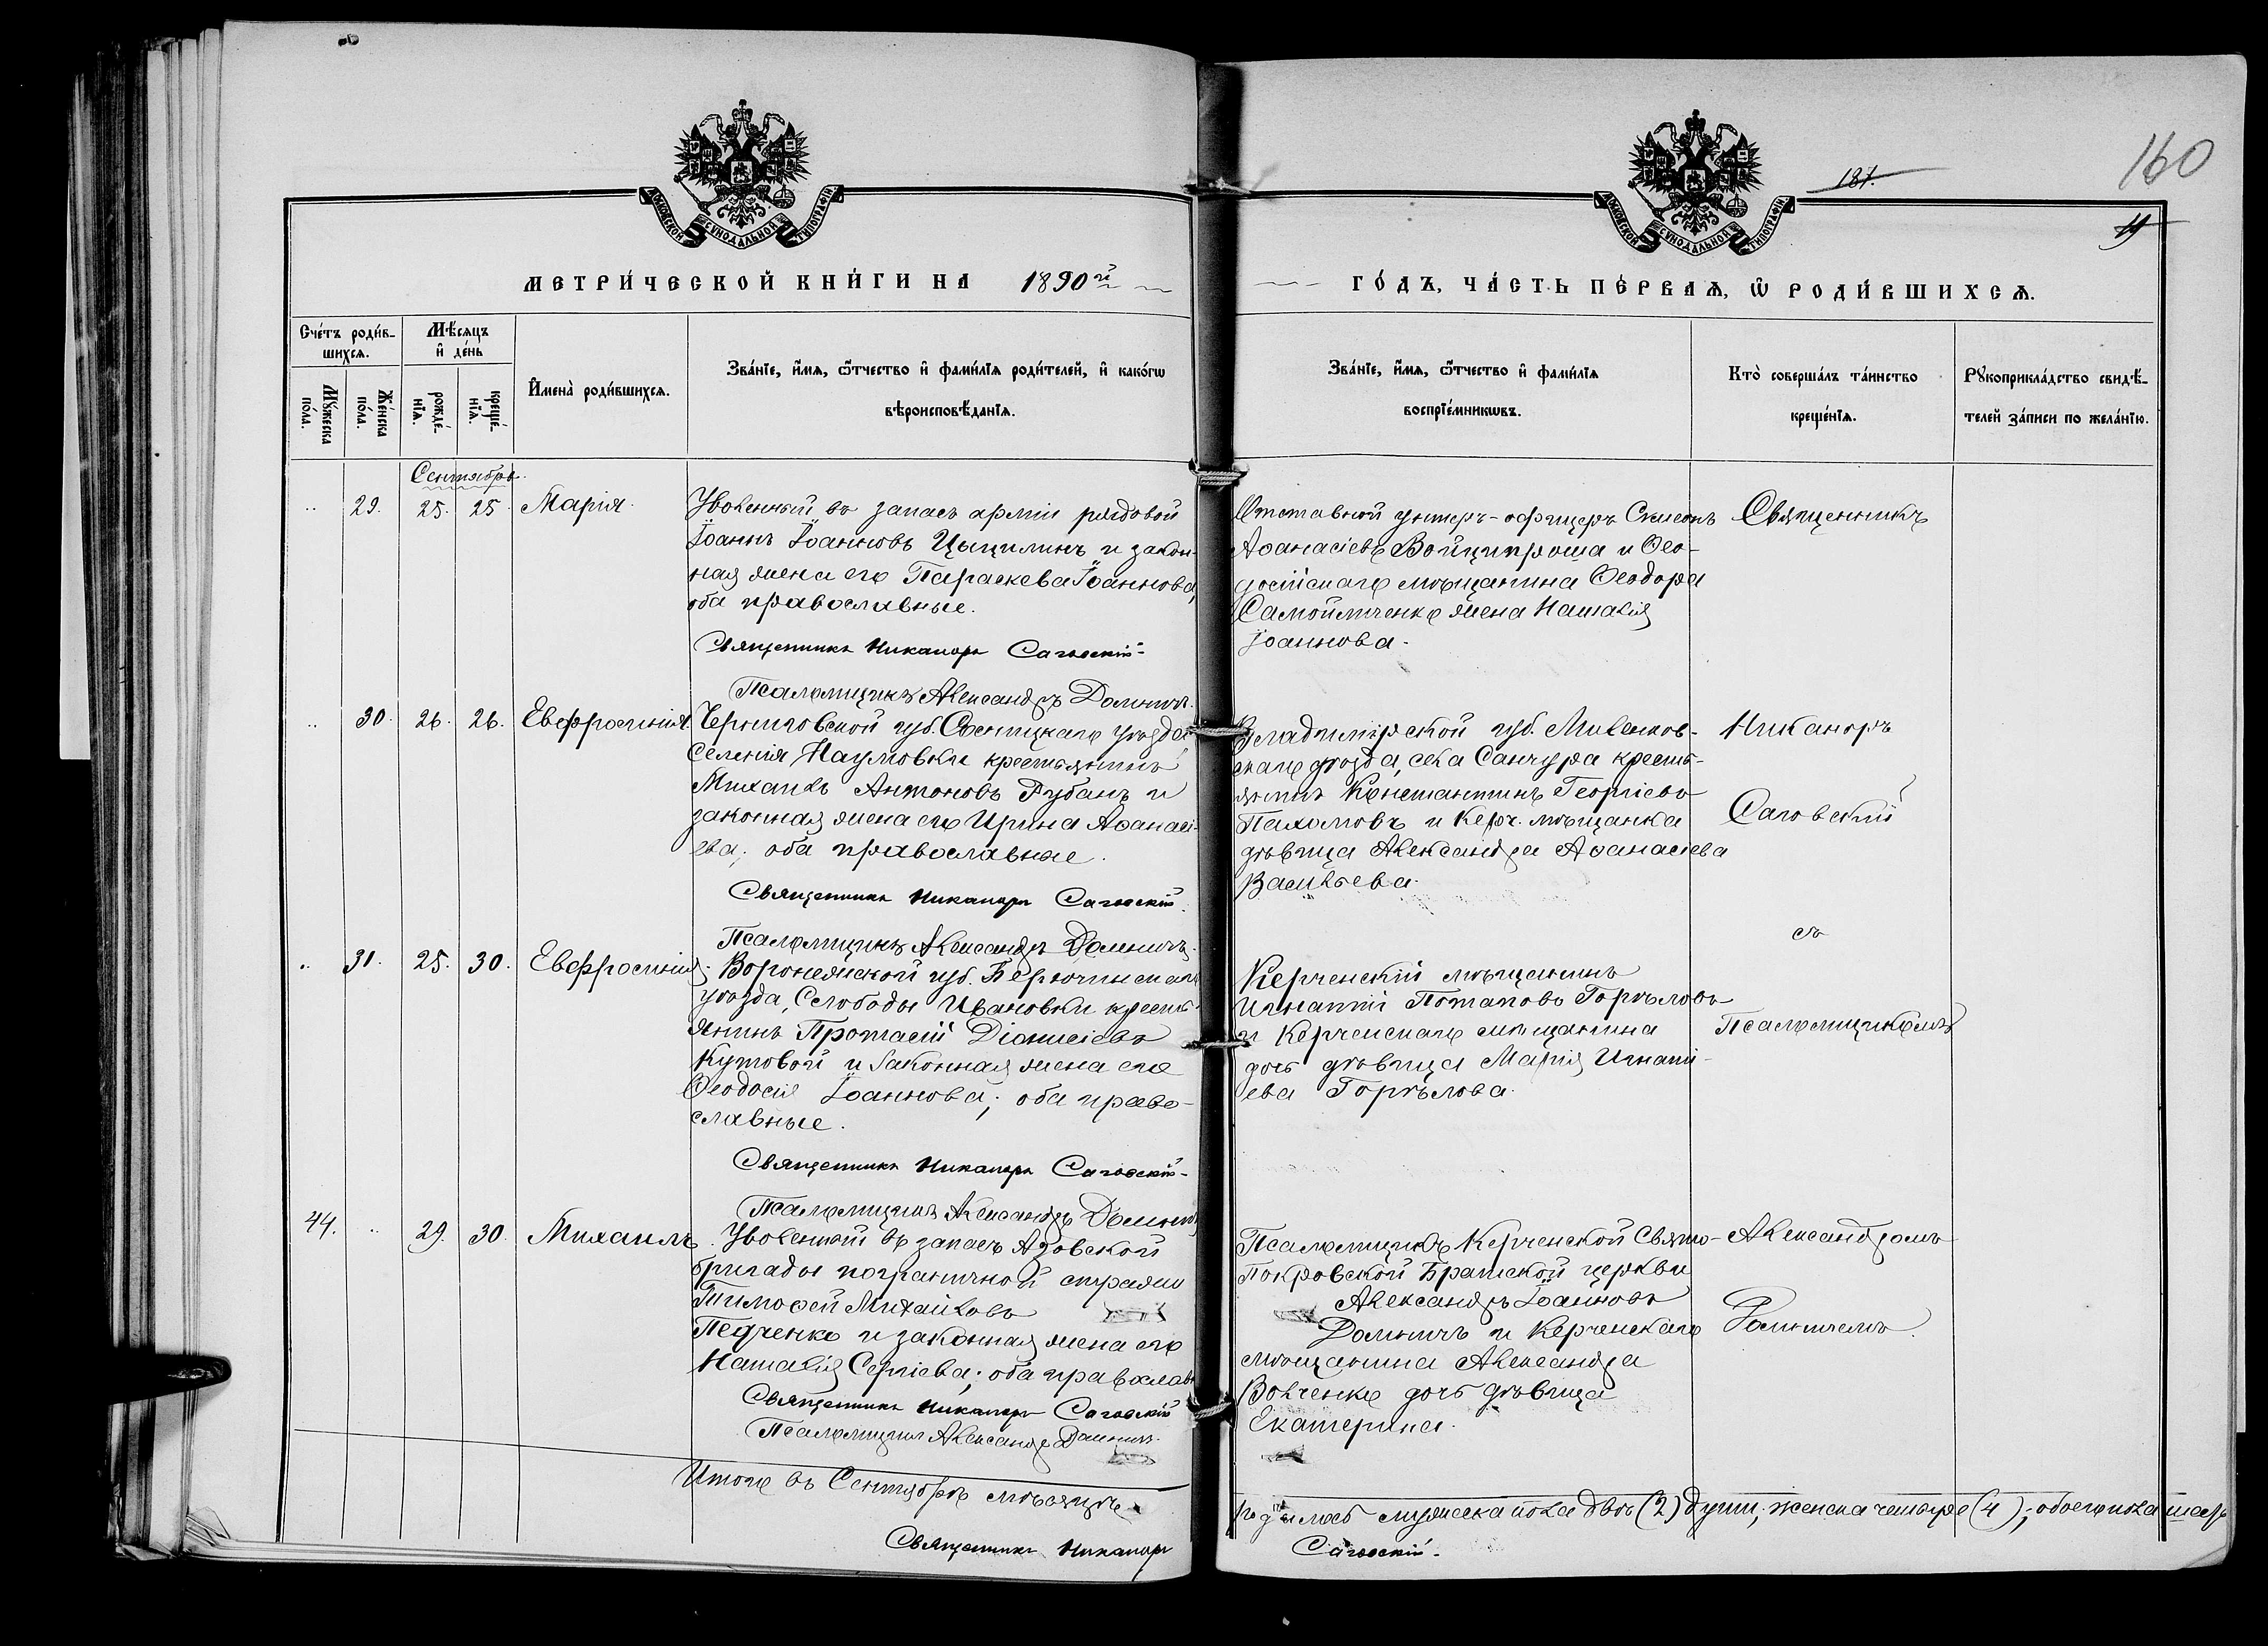 160
187.
МОСКОВСКОЙ СѴНОДАЛЬНОЙ ТИПОГРАФІИ
МОСКОВСКОЙ СѴНОДАЛЬНОЙ ТИПОГРАФІИ
МЕТРИ́ЧЕСКОЙ КНИ́ГИ НА 1890й
ГО́ДЪ, ЧА́СТЬ ПЕ́РВАѦ, Ѡ҆ РОДИ́ВШИХСѦ.
Сче́тъ роди́в-
шихсѧ.
Мꙋ́жеска по́ла.
Же́нска по́ла.
Мѣ́сяцъ
и҆ де́нь
рожде́-нїѧ.
креще́-нїѧ.
И҆мена̀ роди́вшихсѧ.
Зва́нїе, и҆́мѧ, ѻ҆́тчество и҆ фами́лїѧ роди́телей, и҆ како́гѡ
вѣроисповѣ́данїѧ.
Зва́нїе, и҆́мѧ, ѻ҆́тчество и҆ фами́лїѧ
воспрїе́мникѡвъ.
Кто̀ соверша́лъ та́инство
креще́нїѧ.
Рꙋкоприкла́дство свидѣ́-
телей за́писи по жела́нїю.
Сентябрь.
29. 25. 25. Марія.
Уволенный въ запасъ арміи рядовой
Іоаннъ Іоанновъ Цыцилинъ и закон-
ная жена его Параскева Іоаннова,
оба православные.
Священникъ Никаноръ Саговскій
Псаломщикъ Александръ Домничъ.
Отставной унтеръ-офицеръ Симеонъ
Аѳанасіевъ Войципроша и Ѳео-
досійскаго мѣщанина Ѳеодора
Самойличенко жена Наталія
Іоаннова.
Священникъ
30. 26. 26. Евфросинія.
Черниговской губ. Сосницкаго уѣзда
Селенія Наумовки крестьянинъ
Михаилъ Антоновъ Рубанъ и
законная жена его Ирина Аѳанасі-
ева; оба православные.
Священникъ Никаноръ Саговскій.
Псаломщикъ Александръ Домничъ.
Владимірской губ. Миленков-
скаго уѣзда, села Санчура кресть-
янинъ Константинъ Георгіевъ
Пахомовъ и Керч. мѣщанка
дѣвица Александра Аѳанасіева
Васильева.
Никаноръ
Саговскій
съ
31. 25. 30. Евфросинія.
Воронежской губ. Бирючинскаго
уѣзда, Слободы Ивановки кресть-
янинъ Протасій Діонисіевъ
Кутовой и законная жена его
Ѳеодосія Іоаннова; оба право-
славные.
Священникъ Никаноръ Саговскій
Псаломщикъ Александръ Домничъ
Керченскій мѣщанинъ
Игнатій Потаповъ Горѣловъ
и Керченскаго мѣщанина
дочь дѣвица Марія Игнаті-
ева Горѣлова.
Псаломщикомъ
44. 29. 30. Михаилъ
Уволенный въ запасъ Азовской
бригады пограничной стражи
Тимоѳей Михайловъ
Педченко и законная жена его
Наталія Сергіева; оба православ
Священникъ Никаноръ Саговскій
Псаломщикъ Александръ Домничъ.
Псаломщикъ Керченской Свято-
Покровской Братской церкви
Александръ Іоанновъ
Домничъ и Керченскаго
мѣщанина Александра
Вовченко дочь дѣвица
Екатерина.
Александромъ
Домничемъ.
Итого въ Сентябрѣ мѣсяцѣ
родилось мужеска пола двѣ (2) души, женска четыре (4); обоего пола шесть
Священникъ Никаноръ
Саговскій.